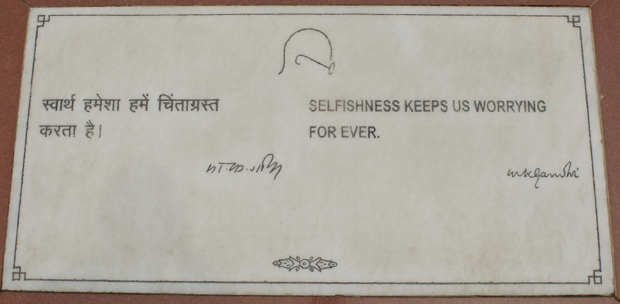 स्वार्थ हमेशा हमें चिंताग्रस्त
करता है।
मो.क.गांधी
SELFISHNESS KEEPS US WORRYING
FOR EVER.
mkgandhi